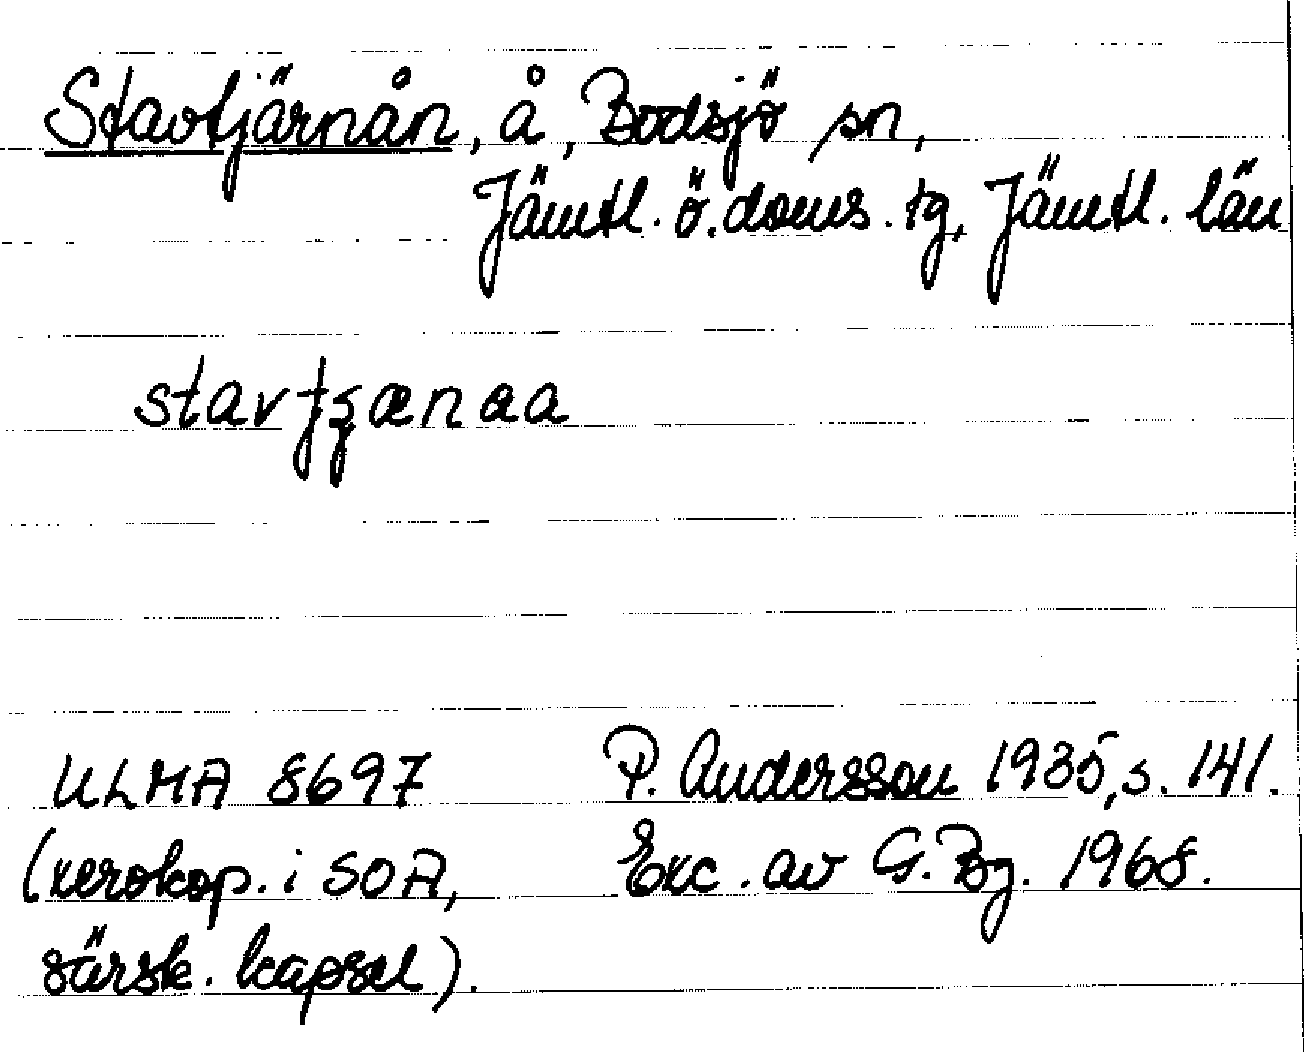 Stavtjärnån, å, Bodsjö sn,
Jämtl. ö. doms. tg, Jämtl. län
ULMA 8697 P. Andersson 1935, s. 141.
(xerokop. i SOA, Exc. av G. Bg. 1968.
särsk. kapsel).